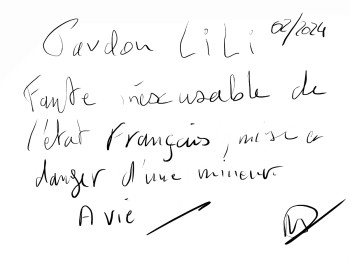 Pardon LiLi 02/2024
Faute inéxcusable de
l'état Français, mise en
danger d'une mineur.
A vie